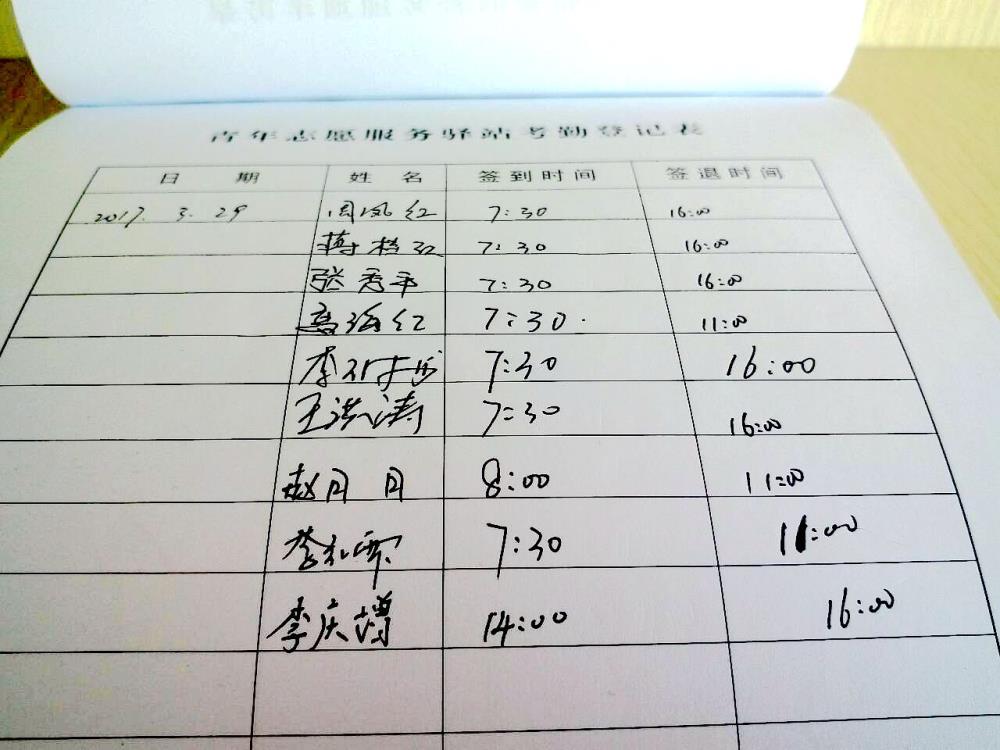 青年志愿服务驿站考勤登记表
日期 姓名 签到时间 签退时间
2017. 3. 29 周凤红 7:30 16:00
蒋 7:30 16:00
张秀平 7:30 16:00
高海红 7:30 11:00
李 7:30 16:00
王洪涛 7:30 16:00
赵月月 8:00 11:00
李 7:30 11:00
李庆增 14:00 16:00